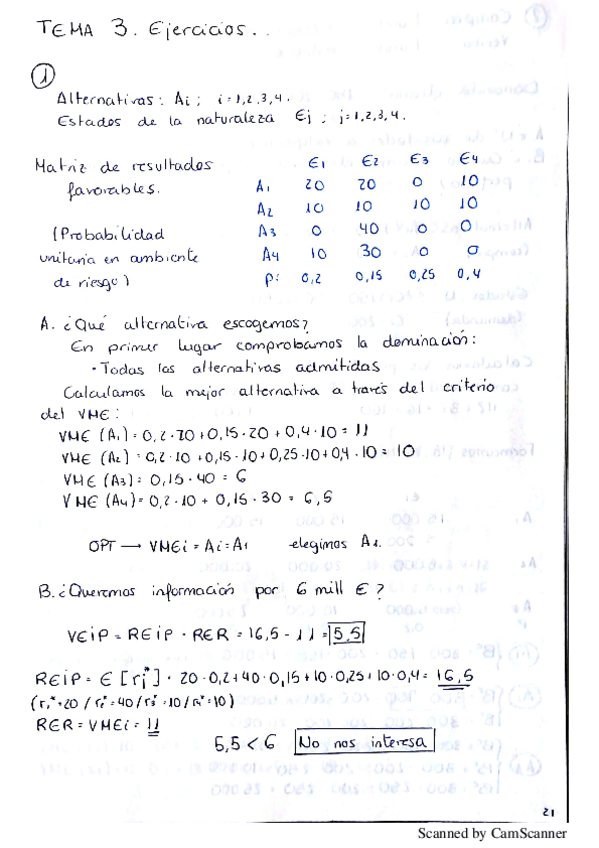 TEMA 3. Ejercicios..
1
Alternativas: Ai ; i=1,2,3,4.
Estados de la naturaleza Ej ; j=1,2,3,4.
Matriz de resultados E1 E2 E3 E4
favorables. A1 20 20 0 10
A2 10 10 10 10
(Probabilidad A3 0 40 0 0
unitaria en ambiente A4 10 30 0 0
de riesgo) P: 0,2 0,15 0,25 0,4
A. ¿Qué alternativa escogemos?
En primer lugar comprobamos la dominación:
· Todas las alternativas admitidas
Calculamos la mejor alternativa a través del criterio
del VME:
VME (A1) = 0,2·20 + 0,15·20 + 0,4·10 = 11
VME (A2) = 0,2·10 + 0,15·10 + 0,25·10 + 0,4·10 = 10
VME (A3) = 0,15·40 = 6
VME (A4) = 0,2·10 + 0,15·30 = 6,5
OPT → VMEi = Ai = A1 elegimos A1.
B. ¿Queremos información por 6 mill €?
VEIP = REIP - RER = 16,5 - 11 = 5,5
REIP = E [ri*] · 20·0,2 + 40·0,15 + 10·0,25 + 10·0,4 = 16,5
(r1*=20 / r2*=40 / r3*=10 / r4*=10)
RER = VMEi = 11
5,5 < 6 No nos interesa
21
Scanned by CamScanner